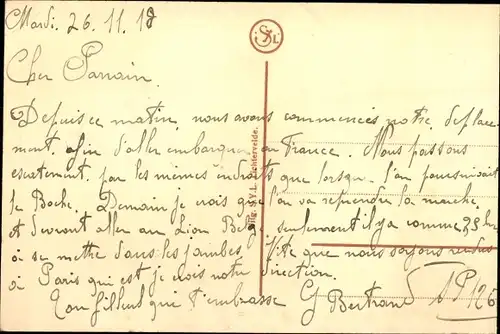 Mardi. 26.11.18
Cher Parrain.
Depuis ce matin, nous avons commencés notre déplace-
ment, afin d'aller embarquer en France. Nous passons
exactement par les mêmes endroits que lorsqu l'on poursuivait
le Boche. Demain je crois que l'on va reprendre la marche
et devront aller au Lion Belge, seulement il y a comme 35 km
à se mettre dans les jambes. Vite que nous soyons rendus
à Paris qui est je crois notre direction.
Ton filleul qui t'embrasse G Bertrand
SP 126